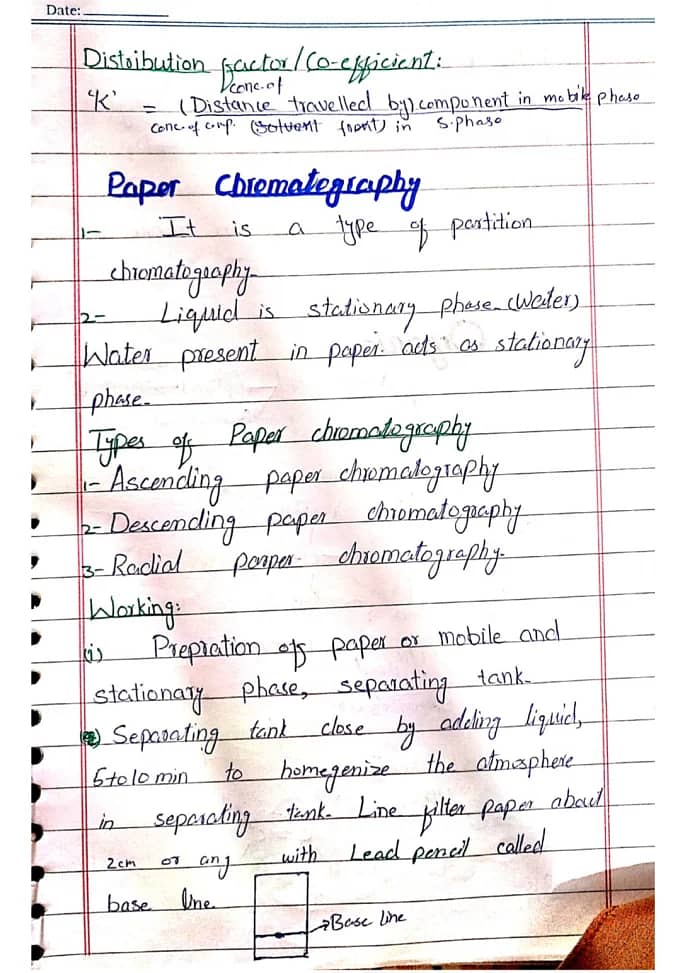 Date:
Distribution factor/Co-efficient:
conc. of
'K' = (Distance travelled by) component in mobile phase
conc. of comp. (solvent front) in s.phase
Paper Chrematography
1- It is a type of partition
chromatography-
2- Liquid is stationary phase. (Water)
Water present in paper. acts as stationary
phase-
Types of Paper chromatography
1- Ascending paper chromatography
2- Descending paper chromatography
3- Radial paper chromatography.
Working:
(i) Prepration of paper or mobile and
stationary phase, separating tank.
Separating tank close by adding liquid,
5 to 10 min to homegenize the atmosphere
in separating tank. Line filter paper about
2cm or any with Lead pencil called
base line.
→Base line